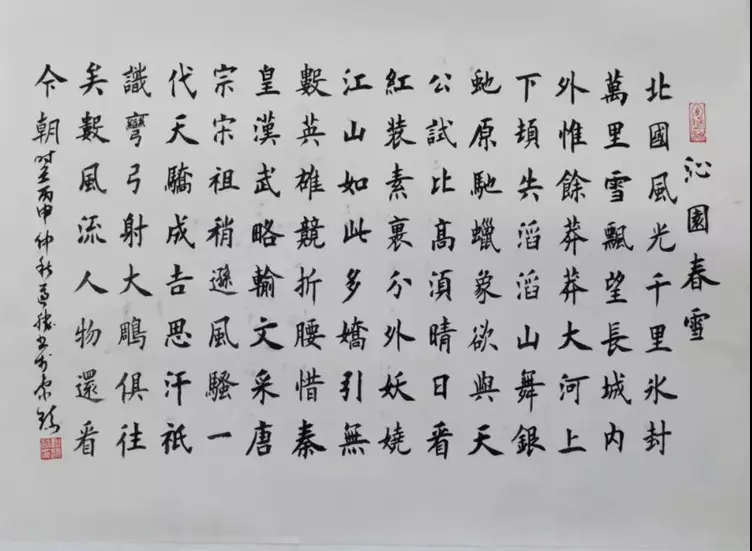 沁園春雪
北國風光千里氷封
萬里雪飄望長城内
外惟餘莽莽大河上
下頓失滔滔山舞銀
虵原馳蠟象欲與天
公試比高湏晴日看
紅裝素裹分外妖嬈
江山如此多嬌引無
數英雄競折腰惜秦
皇漢武略輸文采唐
宗宋祖稍遜風騷一
代天驕成吉思汗祇
識彎弓射大鵰俱往
矣數風流人物還看
今朝时在丙申仲秋书於